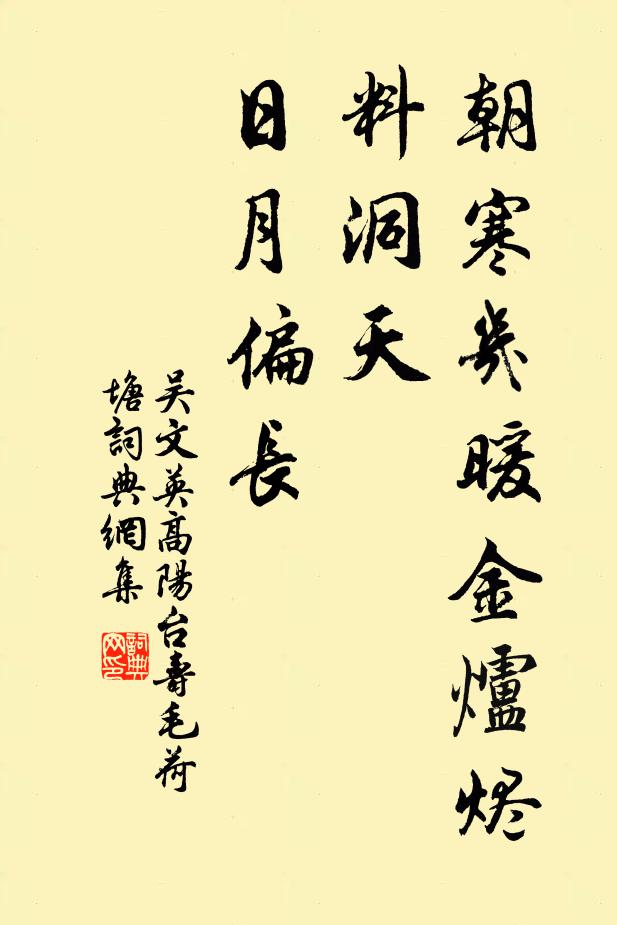 朝寒幾暖金爐烬
料洞天
日月偏長
吳文英高陽台壽毛荷
塘詞典網集
詞典
网印